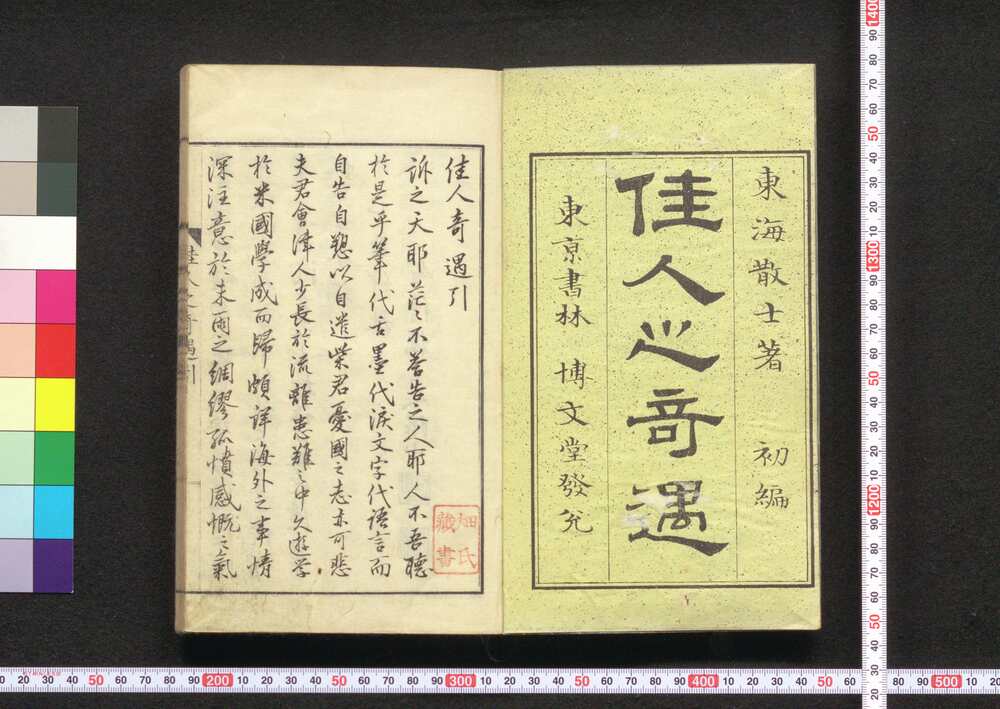 東海散士著 初編
佳人之奇遇
東京書林 博文堂發兌
佳人奇遇引
訴之天耶茫々不荅告之人耶人不吾聽
於是乎筆代舌墨代淚文字代語言而
自告自愬以自遣柴君憂國之志亦可悲
夫君會津人少長於流離患難之中久遊学
於米國學成而歸頗詳海外之事情
深注意於未雨之綢繆孤憤感慨之氣
佳人之奇遇引
畑氏
藏書